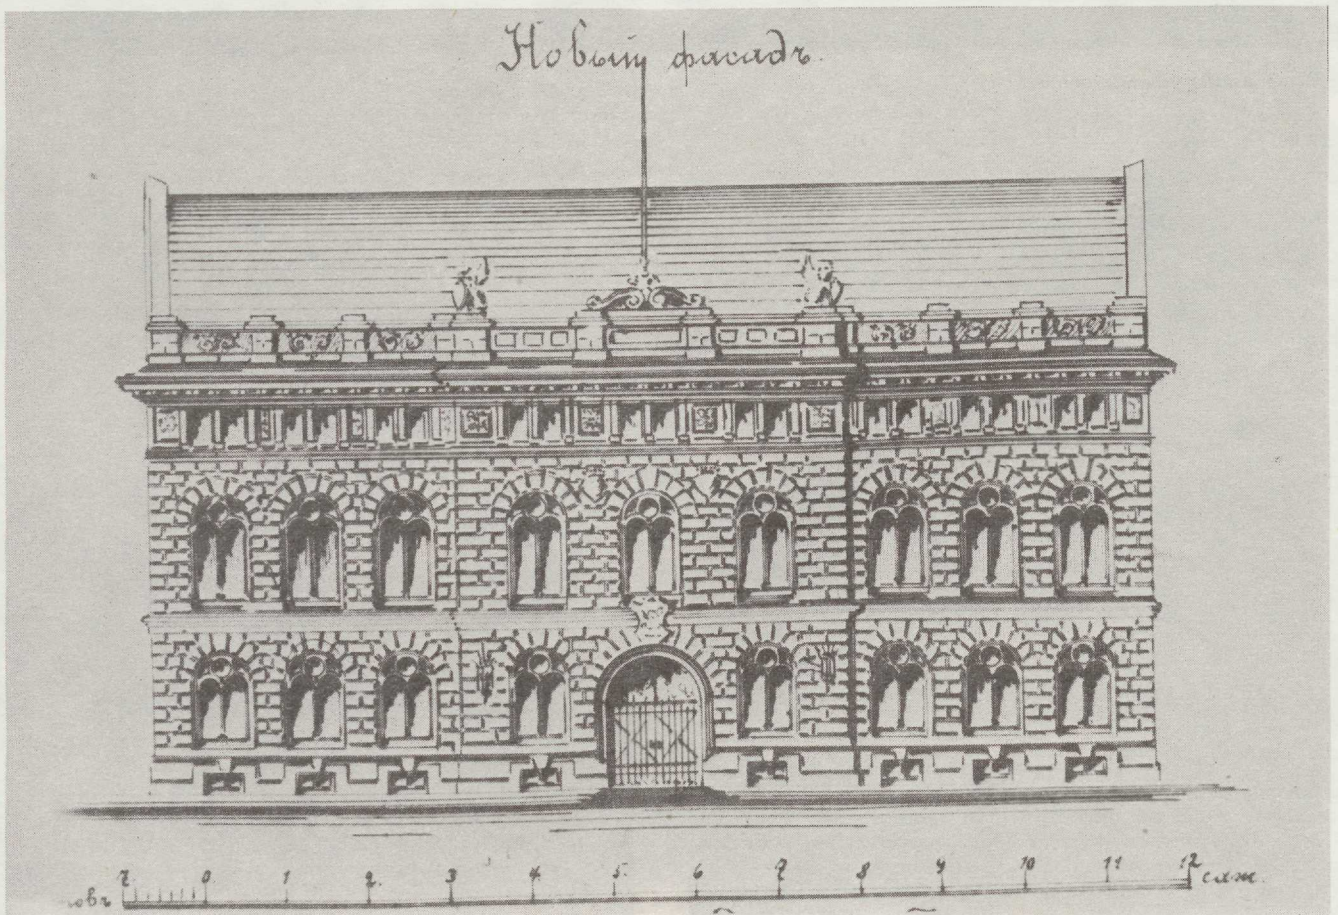 Новый фасадъ.
7. 0. 1 2. 3 4. 5. 6 7 8 9 10 11 12 саж.
овъ